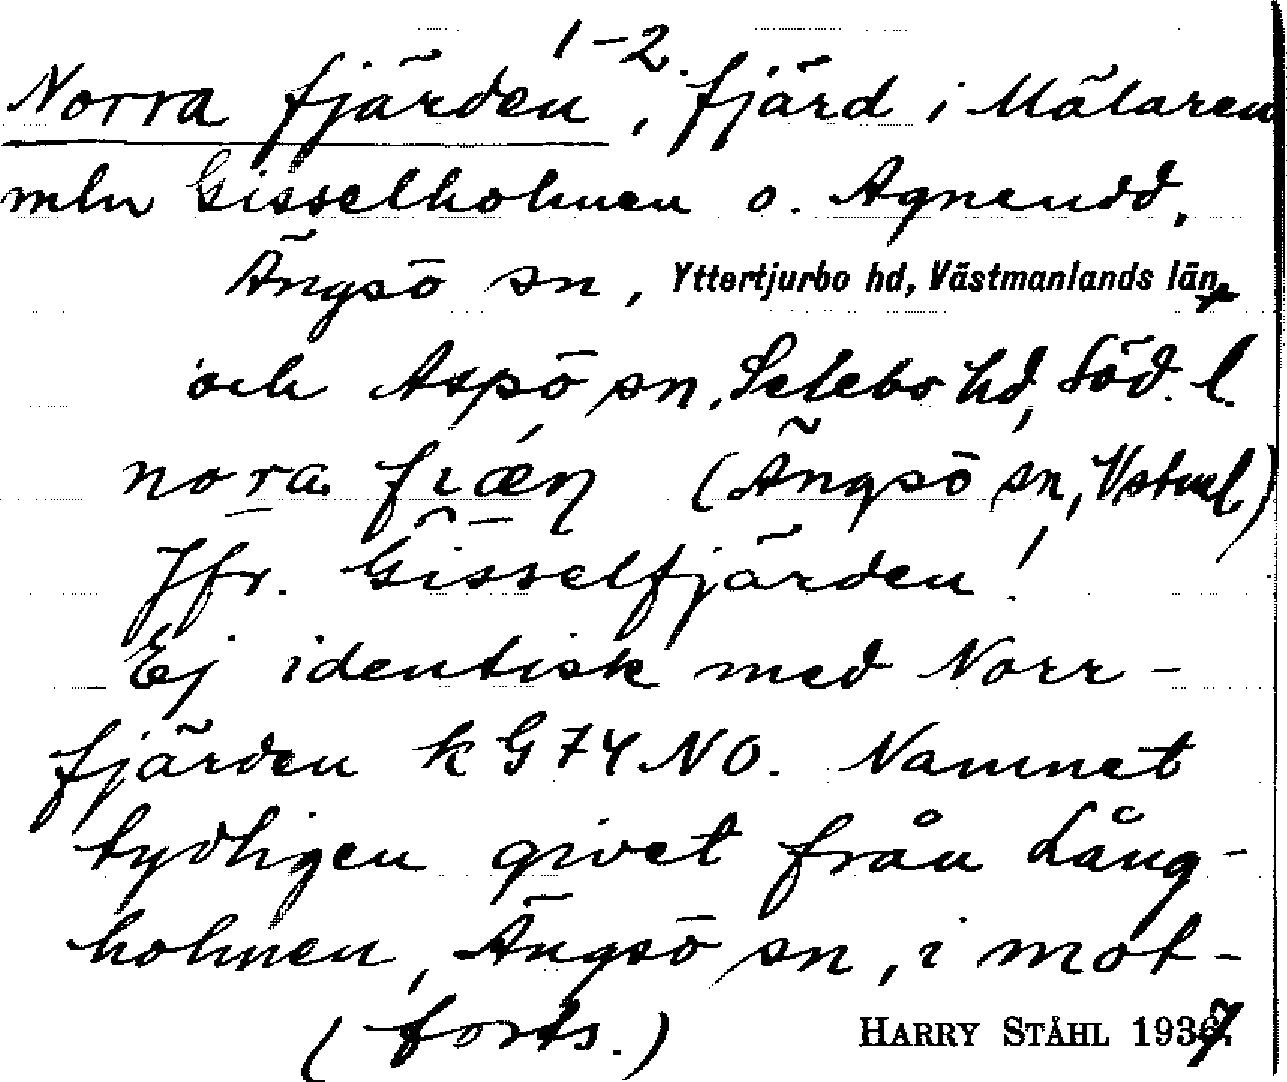 1-2.
Norra fjärden, fjärd i Mälaren
mln Gisselholmen o. Agnеudd,
Ängsö sn, Yttertjurbo hd, Västmanlands län,
och Aspö sn, Selebo hd, Söd. l.
nora (Ängsö sn, Vstml.)
Jfr. Gisselfjärden!
Ej identisk med Norr-
fjärden k G 74 NO. Namnet
tydligen givet från Lång-
holmen, Ängsö sn, i mot-
(forts.)
HARRY STÅHL 1937